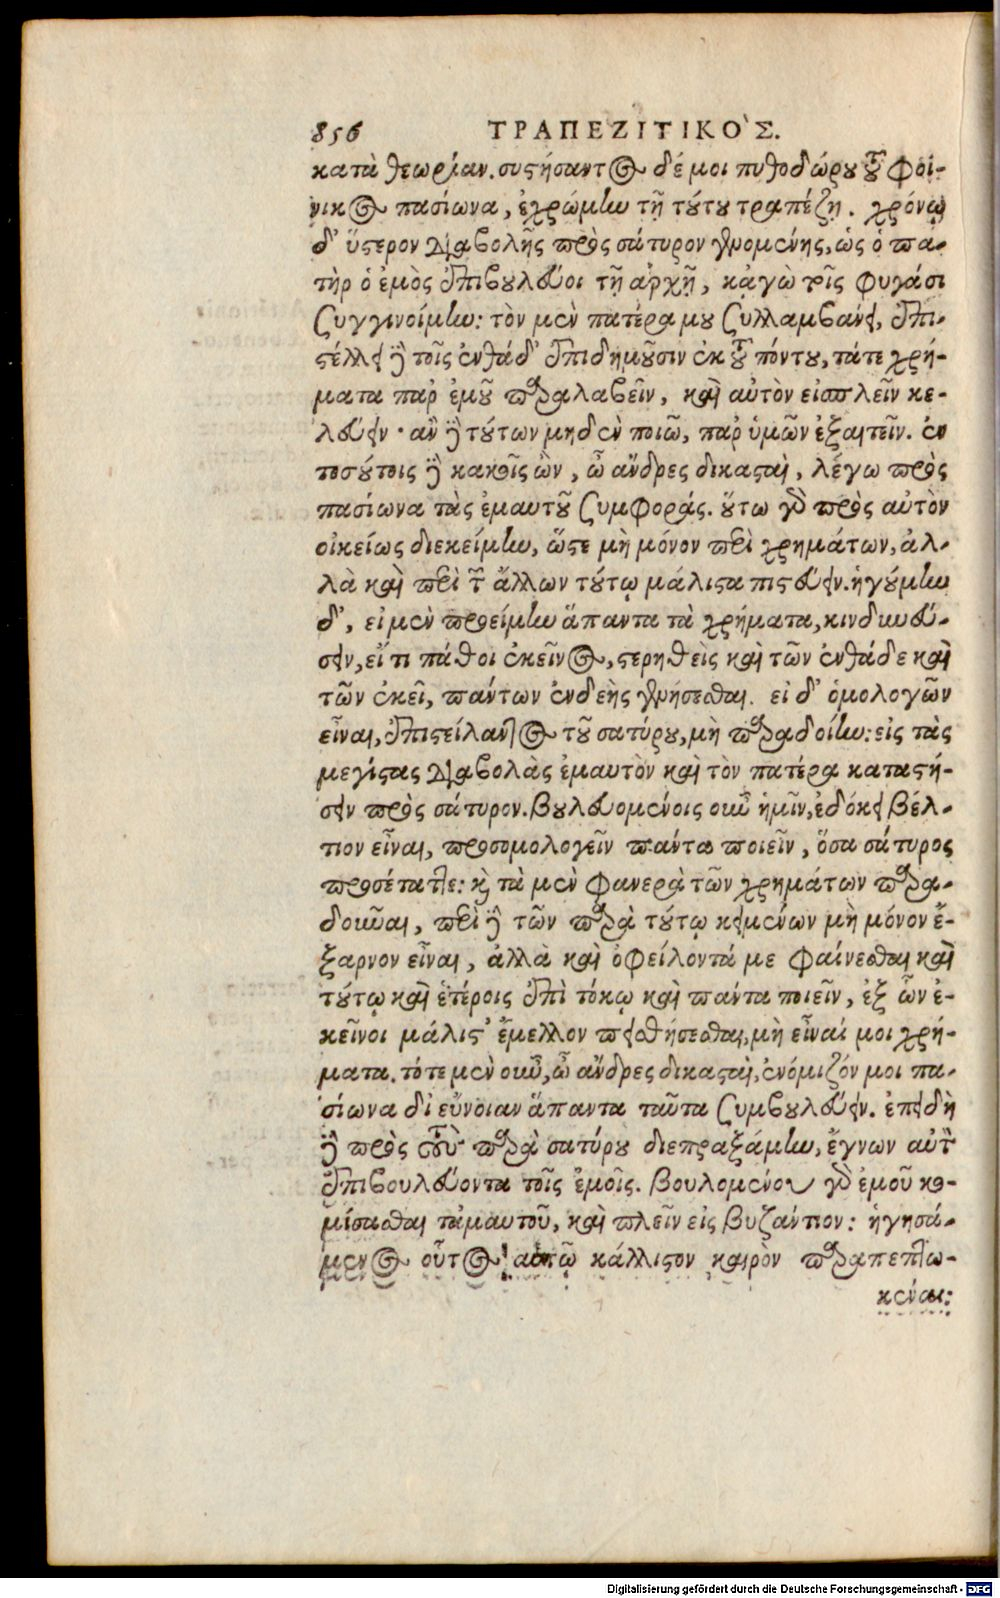 856 ΤΡΑΠΕΖΙΤΙΚΟ`Σ.
κατὰ θεωρίαν. συστήσαντος δέ μοι πυθοδώρου τοῦ φοί-
νικος πασίωνα, ἐχρώμην τῇ τούτου τραπέζῃ. χρόνῳ
δ' ὕστερον διαβολῆς πρὸς σάτυρον γενομένης, ὡς ὁ πα-
τὴρ ὁ ἐμὸς ἐπιβουλεύοι τῇ ἀρχῇ, κἀγὼ τοῖς φυγάσι
συγγινοίμην: τὸν μὲν πατέρα μου συλλαμβάνει, ἐπι-
στέλλει δὲ τοῖς ἐνθάδ' ἐπιδημοῦσιν ἐκ τοῦ πόντου, τάτε χρή-
ματα παρ' ἐμοῦ παραλαβεῖν, καὶ αὐτὸν εἰσπλεῖν κε-
λεύειν· ἂν δὲ τούτων μηδὲν ποιῶ, παρ' ὑμῶν ἐξαιτεῖν. ἐν
τοσούτοις δὲ κακοῖς ὢν, ὦ ἄνδρες δικασταὶ, λέγω πρὸς
πασίωνα τὰς ἐμαυτοῦ συμφοράς. οὕτω γὰρ πρὸς αὐτὸν
οἰκείως διεκείμην, ὥστε μὴ μόνον περὶ χρημάτων, ἀλ-
λὰ καὶ περὶ τῶν ἄλλων τούτῳ μάλιστα πιστεύειν. ἡγούμην
δ', εἰ μὲν προείμην ἅπαντα τὰ χρήματα, κινδυνεύ-
σειν, εἴ τι πάθοι ἐκεῖνος, στερηθεὶς καὶ τῶν ἐνθάδε καὶ
τῶν ἐκεῖ, πάντων ἐνδεὴς γενήσεσθαι. εἰ δ' ὁμολογῶν
εἶναι, ἐπιστείλαντος τοῦ σατύρου, μὴ παραδοίην: εἰς τὰς
μεγίστας διαβολὰς ἐμαυτὸν καὶ τὸν πατέρα καταστή-
σειν πρὸς σάτυρον. βουλευομένοις οὖν ἡμῖν, ἐδόκει βέλ-
τιον εἶναι, προσομολογεῖν πάντα ποιεῖν, ὅσα σάτυρος
προσέταττε: καὶ τὰ μὲν φανερὰ τῶν χρημάτων παρα-
δοῦναι, περὶ δὲ τῶν παρὰ τούτῳ κειμένων μὴ μόνον ἔ-
ξαρνον εἶναι, ἀλλὰ καὶ ὀφείλοντά με φαίνεσθαι καὶ
τούτῳ καὶ ἑτέροις ἐπὶ τόκῳ καὶ πάντα ποιεῖν, ἐξ ὧν ἐ-
κεῖνοι μάλιστ' ἔμελλον πεισθήσεσθαι, μὴ εἶναί μοι χρή-
ματα. τότε μὲν οὖν, ὦ ἄνδρες δικασταὶ, ἐνόμιζόν μοι πα-
σίωνα δι' εὔνοιαν ἅπαντα ταῦτα συμβουλεύειν. ἐπειδὴ
δὲ πρὸς τοὺς παρὰ σατύρου διεπραξάμην, ἔγνων αὐτὸν
ἐπιβουλεύοντα τοῖς ἐμοῖς. βουλομένου γὰρ ἐμοῦ κο-
μίσασθαι τἀμαυτοῦ, καὶ πλεῖν εἰς βυζάντιον: ἡγησά-
μενος οὗτος αὐτῷ κάλλιστον καιρὸν παραπεπτω-
κέναι:
Digitalisierung gefördert durch die Deutsche Forschungsgemeinschaft - DFG